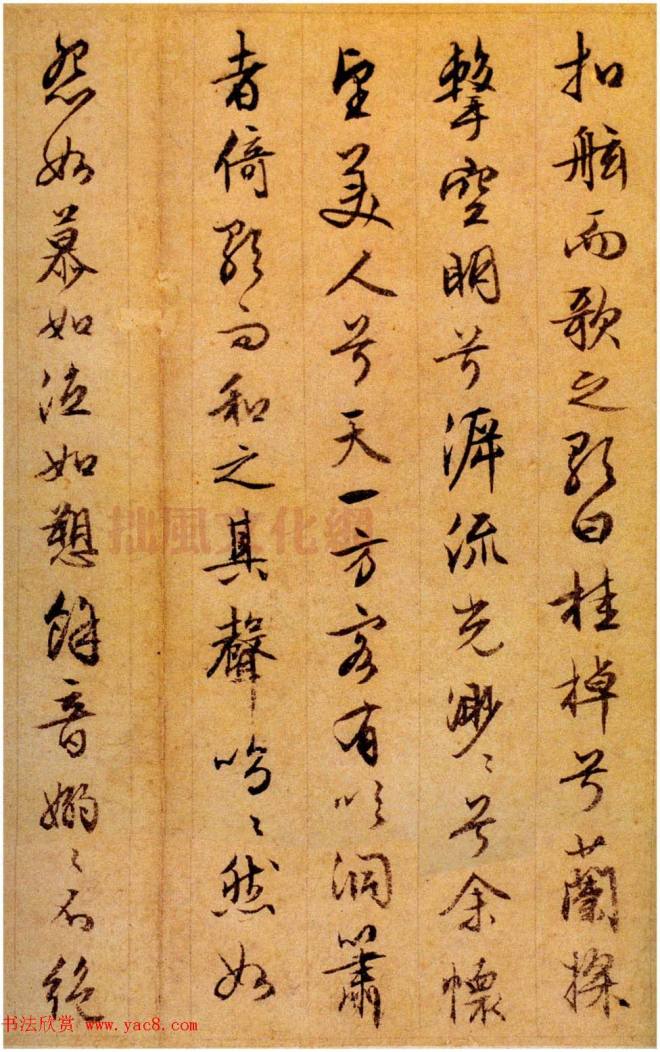 扣舷而歌之歌曰桂棹兮蘭槳
擊空明兮泝流光渺〻兮余懷
望美人兮天一方客有吹洞簫
者倚歌而和之其聲嗚〻然如
怨如慕如泣如愬餘音嫋〻不絕
拙風文化網
书法欣赏 www.yac8.com